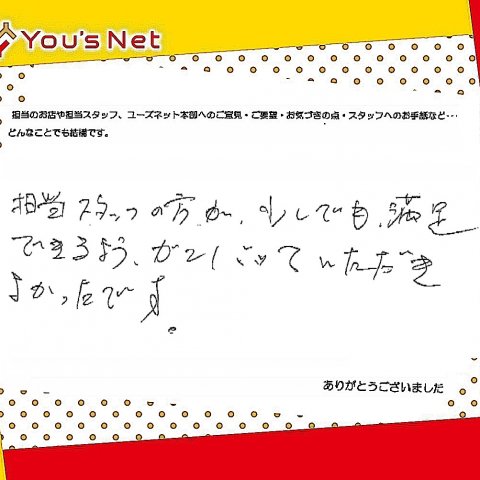 You's Net
担当のお店や担当スタッフ、ユーズネット本部へのご意見・ご要望・お気づきの点・スタッフへのお手紙など…
どんなことでも結構です。
担当スタッフの方が、少しでも、満足
できるよう、ガンバッていただき
よかったです。
ありがとうございました